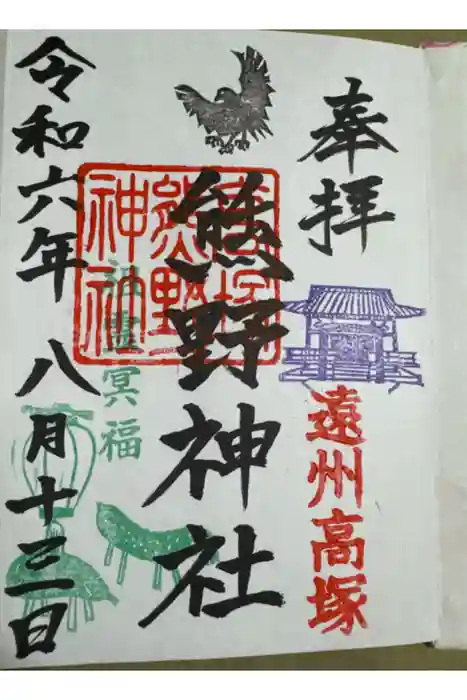 奉拝
遠州高塚
熊野神社
高塚
熊野
神社
令和六年 八月十三日